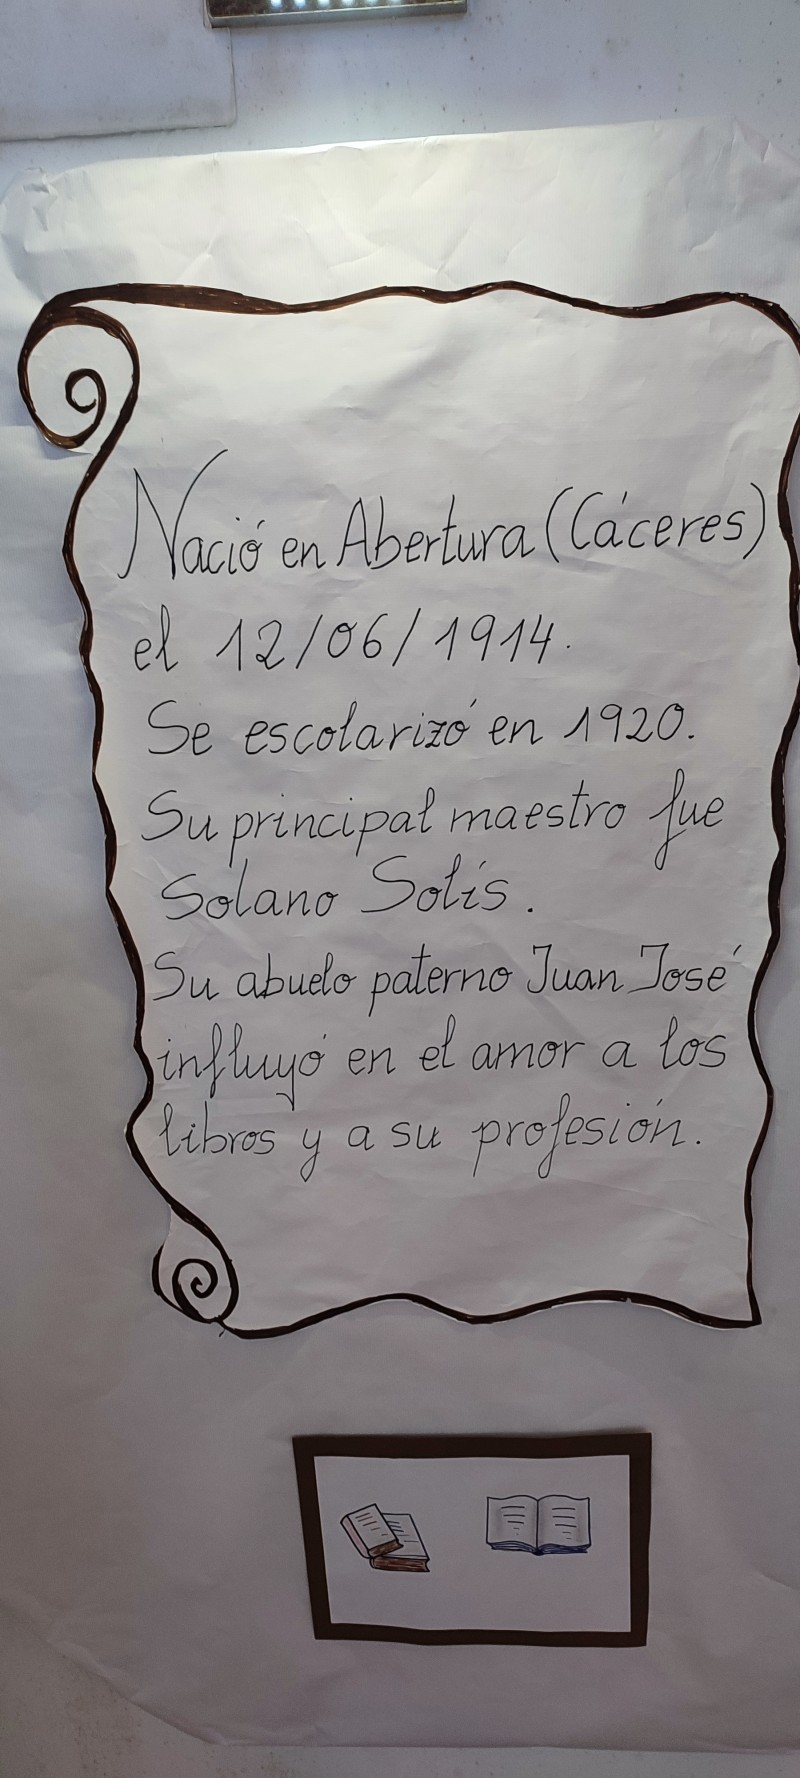 Nació en Abertura (Cáceres)
el 12/06/1914.
Se escolarizó en 1920.
Su principal maestro fue
Solano Solís.
Su abuelo paterno Juan José
influyó en el amor a los
libros y a su profesión.